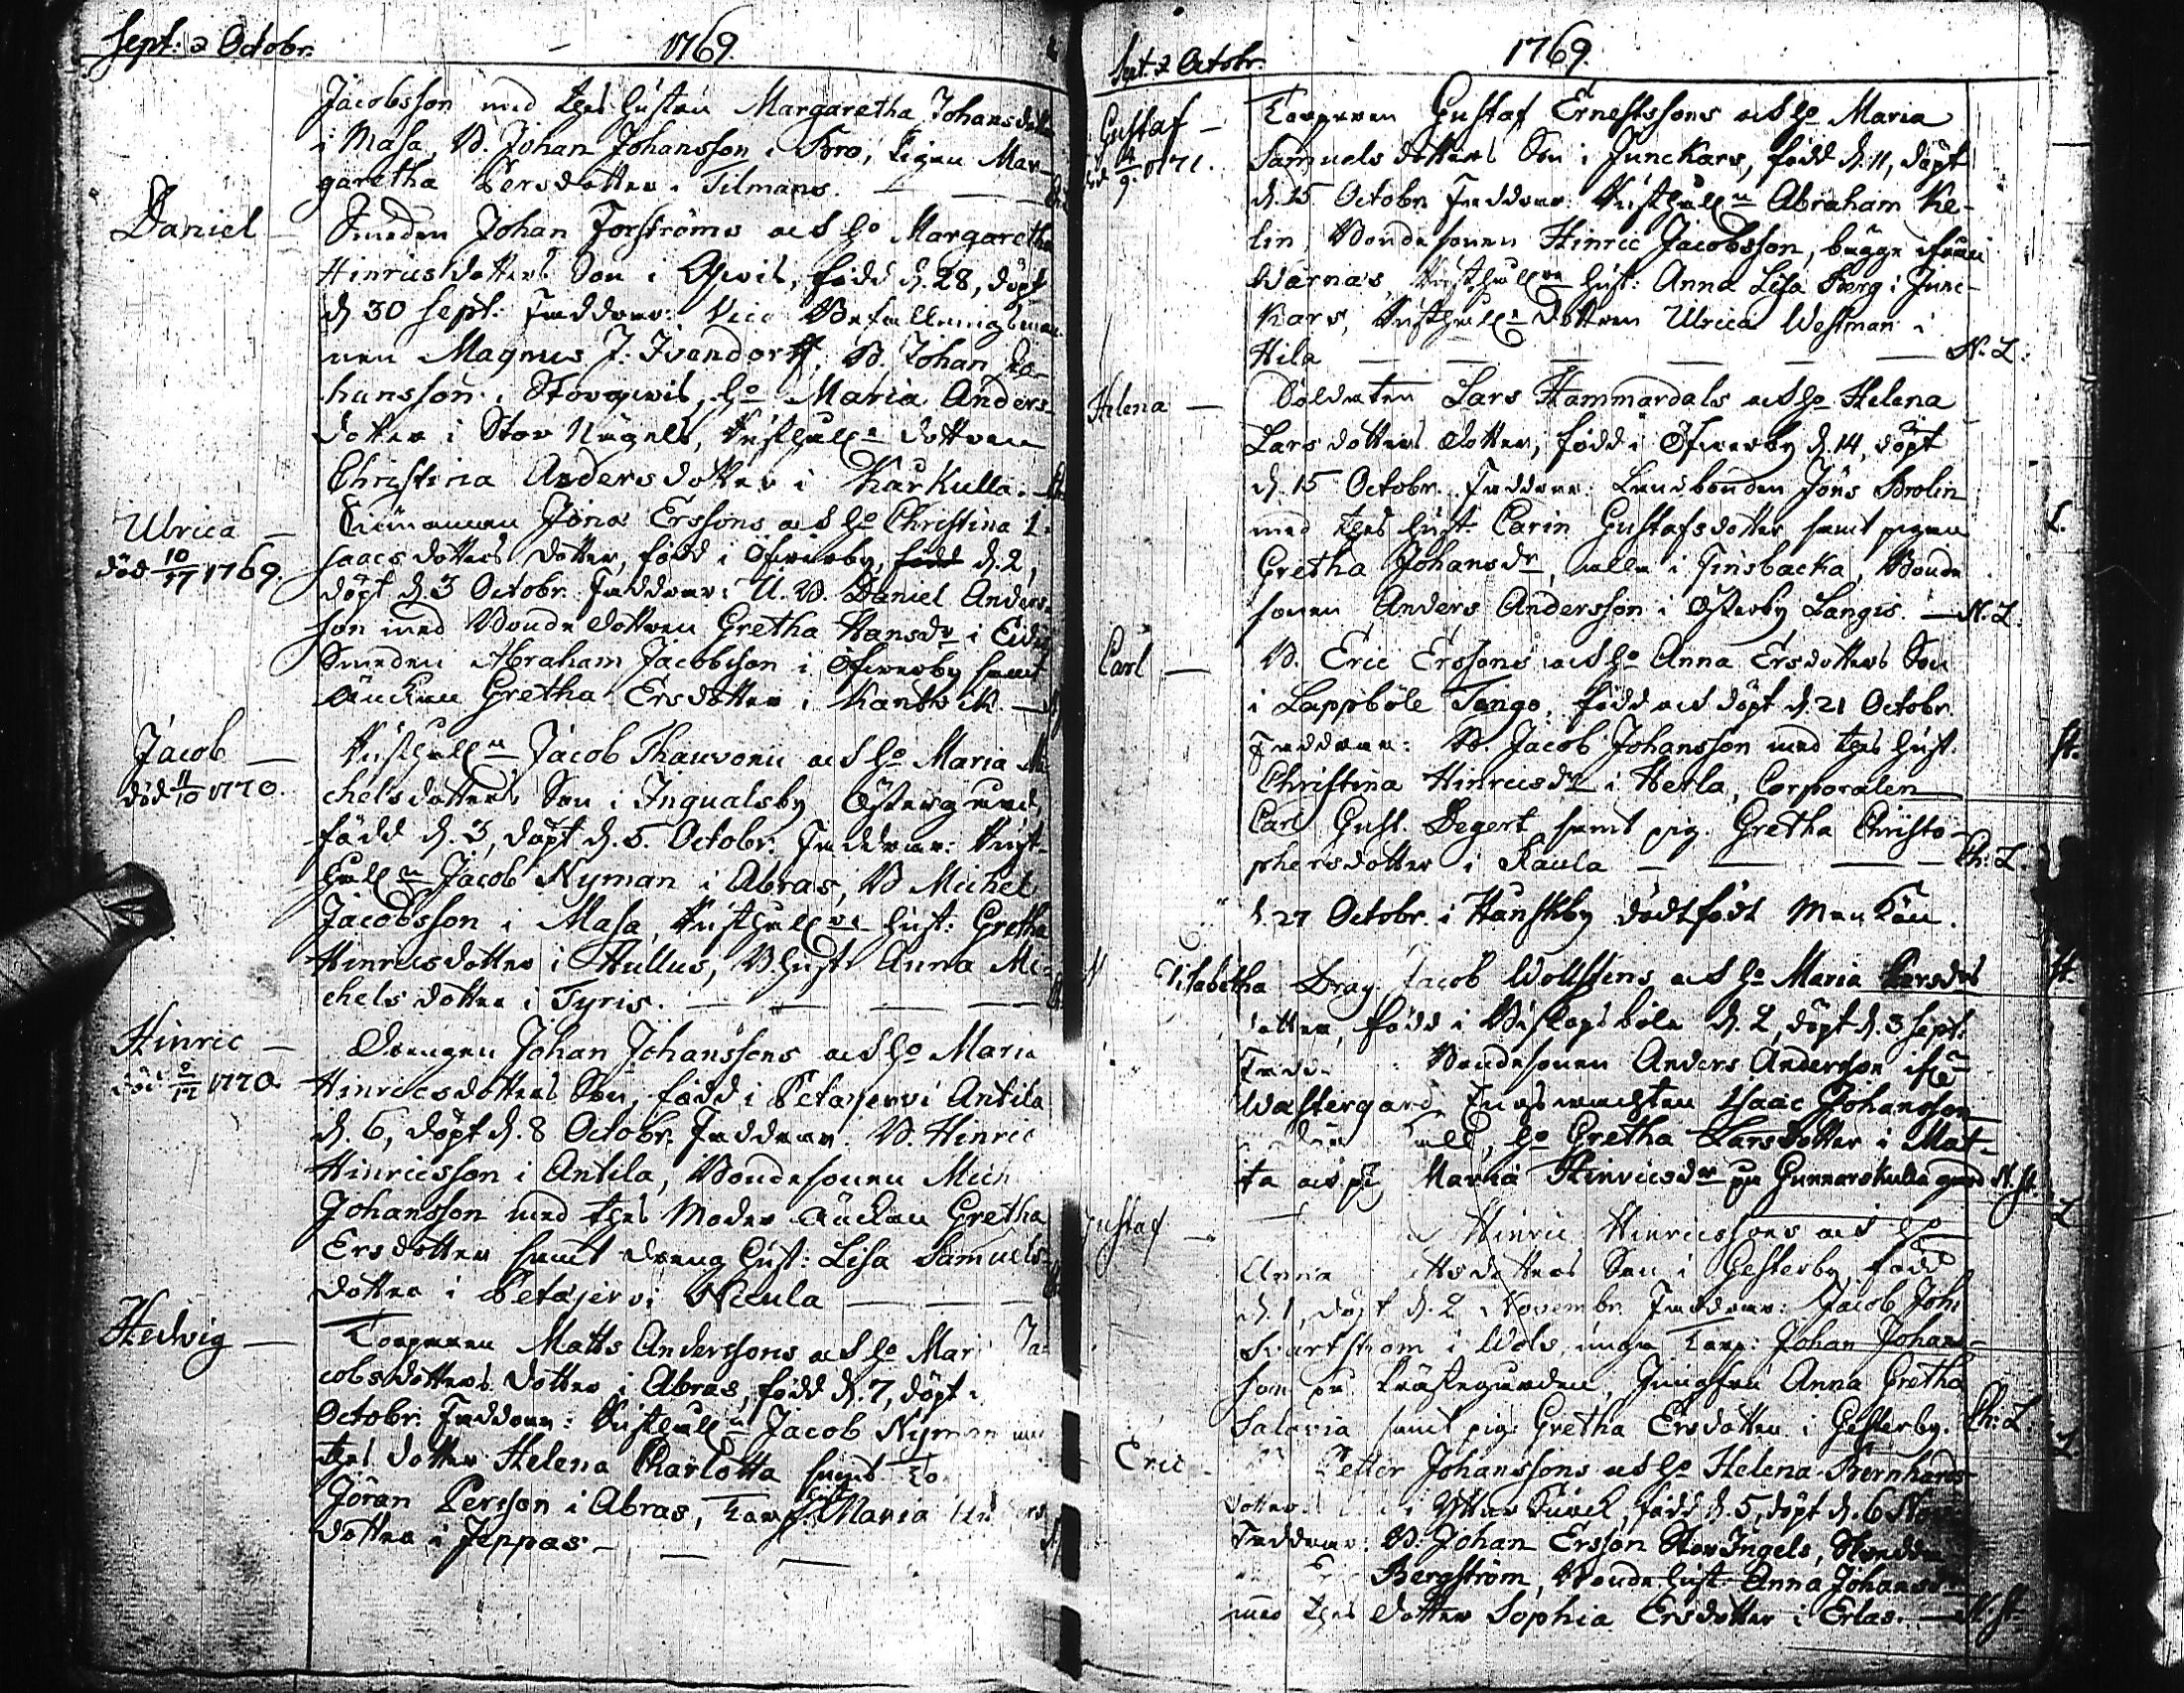 Sept: & Octobr. 1769.
Jacobsson med thes hustru Margaretha Johansdotter
i Masa, B. Johan Johansson i Bro, Pigan Mar-
garetha Persdotter i Tilmans.
Daniel — Smeden Johan Forströms och h:o Margaretha
Hinricsdotters Son i Qwis, född d. 28, döpt
d. 30 Sept: Faddrar: Vice Befallningsman-
nen Magnus J. Ivendorff, B. Johan Jo-
hansson i Storqwis, h:o Maria Anders-
dotter i Stor Nägels, Rusthåll:s dottren
Christina Andersdotter i Karkulla.
Ulrica — Jöns Erssons och h:o Christina I-
död 10/17 1769. saacs dotters dotter, född i Öfwerby, född d. 2,
döpt d. 3 Octobr. Faddrar: U. B. Daniel Anders-
son med Bonde dottren Gretha Hansdr i
Smeden Abraham Jacobsson i Öfwerby samt
Änckan Gretha Ersdotter i Kantwik —
Jacob — Rusthåll:n Jacob Thauvonii och h:o Maria Mi-
död 11/10 1770. chelsdotters Son i Ingvalsby Östergård,
född d. 3, döpt d. 5. Octobr. Faddrar: Rust-
håll:n Jacob Nyman i Abras, B Michel
Jacobsson i Masa, Rusthåll:ns hust: Gretha
Hinricsdotter i Hullus, B hust: Anna Mi-
chels dotter i Tyris.
Hinric — Drengen Johan Johanssons och h:o Maria
död 1770. Hinricsdotters Son, född i Petajervi Antila
d. 6, döpt d. 8 Octobr. Faddrar. B. Hinric
Hinricsson i Antila, Bondesonen Mich
Johansson med thes Moder Änckan Gretha
Ersdotter samt dreng hust: Lisa Samuels-
dotter i Petajervi Nicula
Hedwig — Torparen Matts Anderssons och h:o Mari Ja-
cobsdotters dotter i Abras, född d. 7, döpt
Octobr. Faddrar: Rusthåll:n Jacob Nyman med
thes dotter Helena Charlotta samt To
Jöran Persson i Abras, Torp: hust Maria
dotter i Jeppas —
Sept. & Octobr. 1769.
Gustaf — Torparen Gustaf Ernestssons och h:o Maria
död 4/9. 1771. Samuelsdotters Son i Junckars, född d. 11, döpt
d. 15 Octobr. Faddrar: Rusthåll:n Abraham Ke-
lin, Bondesonen Hinric Jacobsson, begge ifrån
Warnäs, Rusthåll:ns hust: Anna Lisa Berg i Junc-
kars, Rusthåll:s dottren Ulrica Westman i
Hila — N. L:
Helena — Soldaten Lars Hammardals och h:o Helena
Lars dotters dotter, född i Öfwerby d. 14, döpt
d. 15 Octobr. Faddrar: Landbonden Jöns Brolin
med thes hust Carin Gustafsdotter samt pigan
Gretha Johansdr, alla i Finsbacka, Bonde
sonen Anders Andersson i Österby Langis. — N. L.
Carl — B. Eric Erssons och h:o Anna Ersdotters Son
i Lappböle Tango, född och döpt d. 21 Octobr.
Faddrar: B. Jacob Johansson med thes hust.
Christina Hinricsdr i Hetla, Corporalen
Carl Gust. Degert samt pig. Gretha Christo-
phersdotter i Kaula — Ch: L.
d. 27 Octobr. i Hanskby dödfödt Mankön.
Elisabetha Drag. Jacob Wollstens och h:o Maria Persdrs
dotter, född i Biskopsböle d. 2, döpt d. 3 Sept.
Fadd: Bondesonen Anders Andersson ifr:
Wastergard, Isaac Johansson
h:o Gretha Larsdotter i Mat-
ta och pig Maria Hinricsdr på Gunnarskulla gård N. St.
Gustaf — Hinric Hinricssons och h:o
Anna ttsdotters Son i Gesterby född
d. 1, döpt d. 2 Novembr. Faddrar: Jacob Joh:
Svartström i Wols, unga Torp: Johan Johans-
son på Prästegården, Jungfru Anna Gretha
Salovia samt pig Gretha Ersdotter i Gesterby. Ch: L.
Eric — Petter Johanssons och h:o Helena Bernhards-
dotters i Ytter Kurck, född d. 5, döpt d. 6 Nov.
Faddrar: B. Johan Ersson Stor Ingels,
Bergström, Bonde hust. Anna Johansdr
med thes dotter Sophia Ersdotter i Erlas. — N. St.